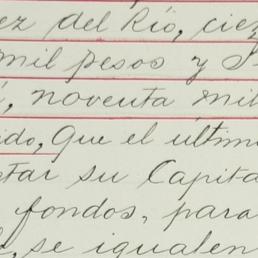 ez del Río, cie
mil pesos y S
, noventa mil
ido, Que el últim
tar su Capita
fondos, para
se igualen